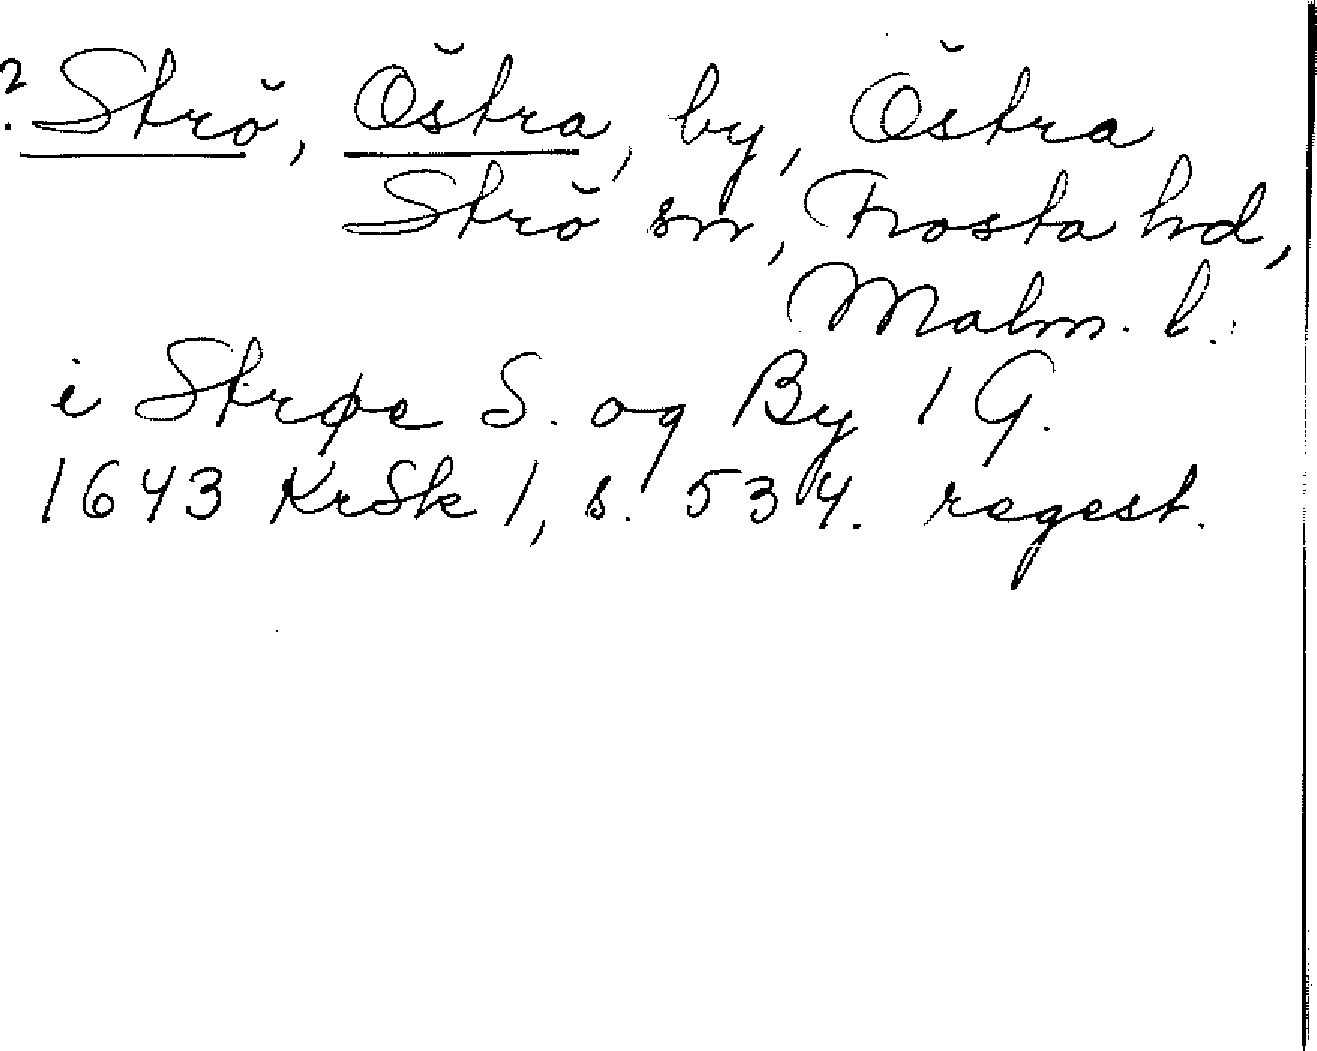 ? Strö, Östra, by, Östra
Strö sn, Frosta hd,
Malm. l.:
i Strøe S. og By 1 G.
1643 KrSk 1, s. 534. regest.